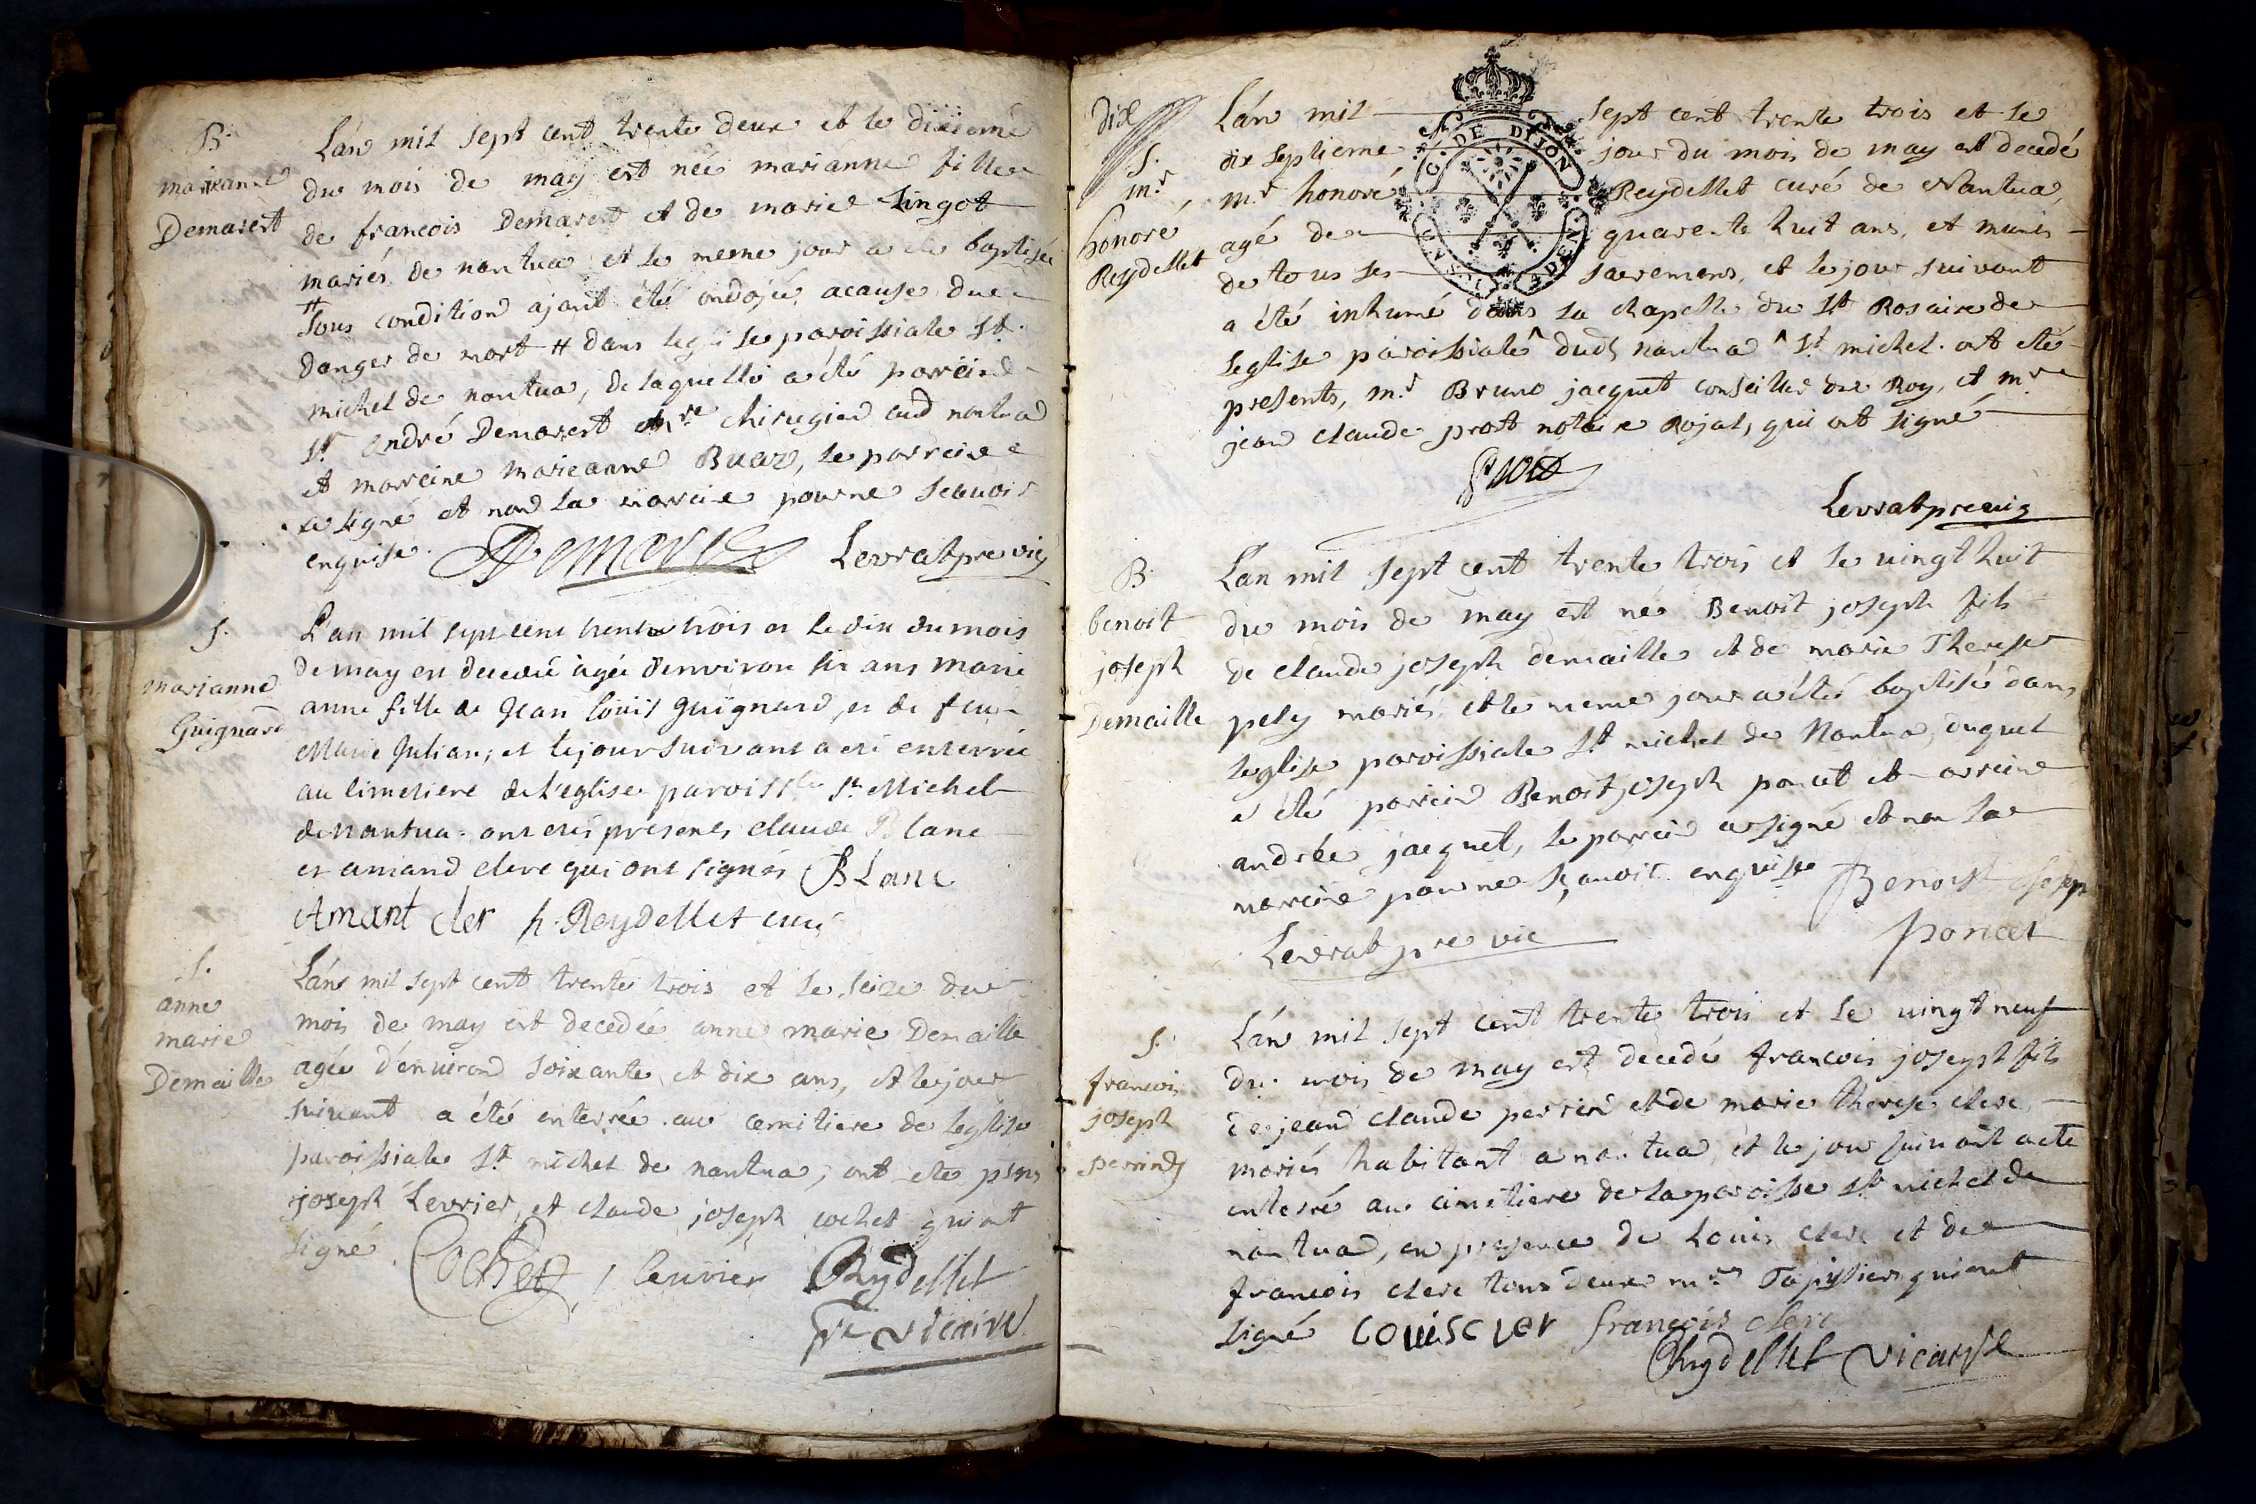 B.
marianne
Demarest
L'an mil sept cent trente deux et le dixieme
du mois de may est née marianne fille
de francois Demarest et de marie Lingot
mariés de nantua et le meme jour a ete baptisée
# sous condition ajant été ondojée acause du
danger de mort # dans leglise paroissiale St.
michel de nantua, de laquelle a été parrein
Sr. André Demarest mre chirugien aud nantua
et marreine marieanne Buaz, le parreine
a signé et non la marreine pour ne scauoir
enquise. Demarest Levrat pre vic
S.
marianne
Guignard
L'an mil sept cent trente trois et le dix du mois
de may est decedée agée d'environ six ans Marie
anne fille de Jean Loüis Guignard, et de feue
Marie Julian; et le jour suivant a eté enterrée
au cimetiere de l'eglise paroissle St Michel
de Nantua. ont étés presents claude Blanc
et amand clerc qui ont signés BLanc
Amant cler h. Reydellet curé
S.
anne
marie
Demaille
L'an mil sept cent trente trois et le seize du
mois de may est decedée anne marie Demaille
agée d'enuiron soixante et dix ans, et le jour
suiuant a été enterrée au cemitiere de leglise
paroissiale St. michel de nantua, ont ete pnts
joseph Levrier, et claude joseph cochet qui ont
signé. Cochet, J Leuvrier Reydellet
pre vicaire
dix
S.
mr.
honoré
Reydellet
L'an mil sept cent trente trois et le
dix septieme jour du mois de may est decedé
mr. honoré Reydellet curé de Nantua,
agé de quarente huit ans, et munis
de tous ses sacremens, et le jour suiuant
a été inhumé dans la chapelle du St Rosaire de
leglise paroissiale ^ dud nantua ^ St. michel. ont eté
presents, mr. Bruno jacquet conseiller du Roy, et mre
jean claude prost notaire Rojal, qui ont signé
G. DE DIJON
Prost
Levrat pre vic
B.
benoit
joseph
Demaille
L'an mil sept cent trente trois et le uingt huit
du mois de may est né Benoit joseph fils
de claude joseph demaille et de marie Therese
pely mariés et le meme jour a été baptisé dans
leglise paroissiale St. michel de Nantua, duquel
a été parrein Benoit joseph poncet et marreine
andrée jacquet, le parrein a signé et non la
marreine pour ne scauoir enquise Benoist Joseph
Levrat pre vic poncet
S.
francois
joseph
perrin
L'an mil sept cent trente trois et le uingt neuf
du mois de may est decedé francois joseph fils
de jean claude perrin et de marie therese clerc
mariés habitant a nantua, et le jour suiuant a eté
enterré au cimetiere de la paroisse St. michel de
nantua, en presence de Louis clerc et de
francois clerc tous deux mres Tapissiers qui ont
signé Louis cler francois clerc
Reydellet vicaire